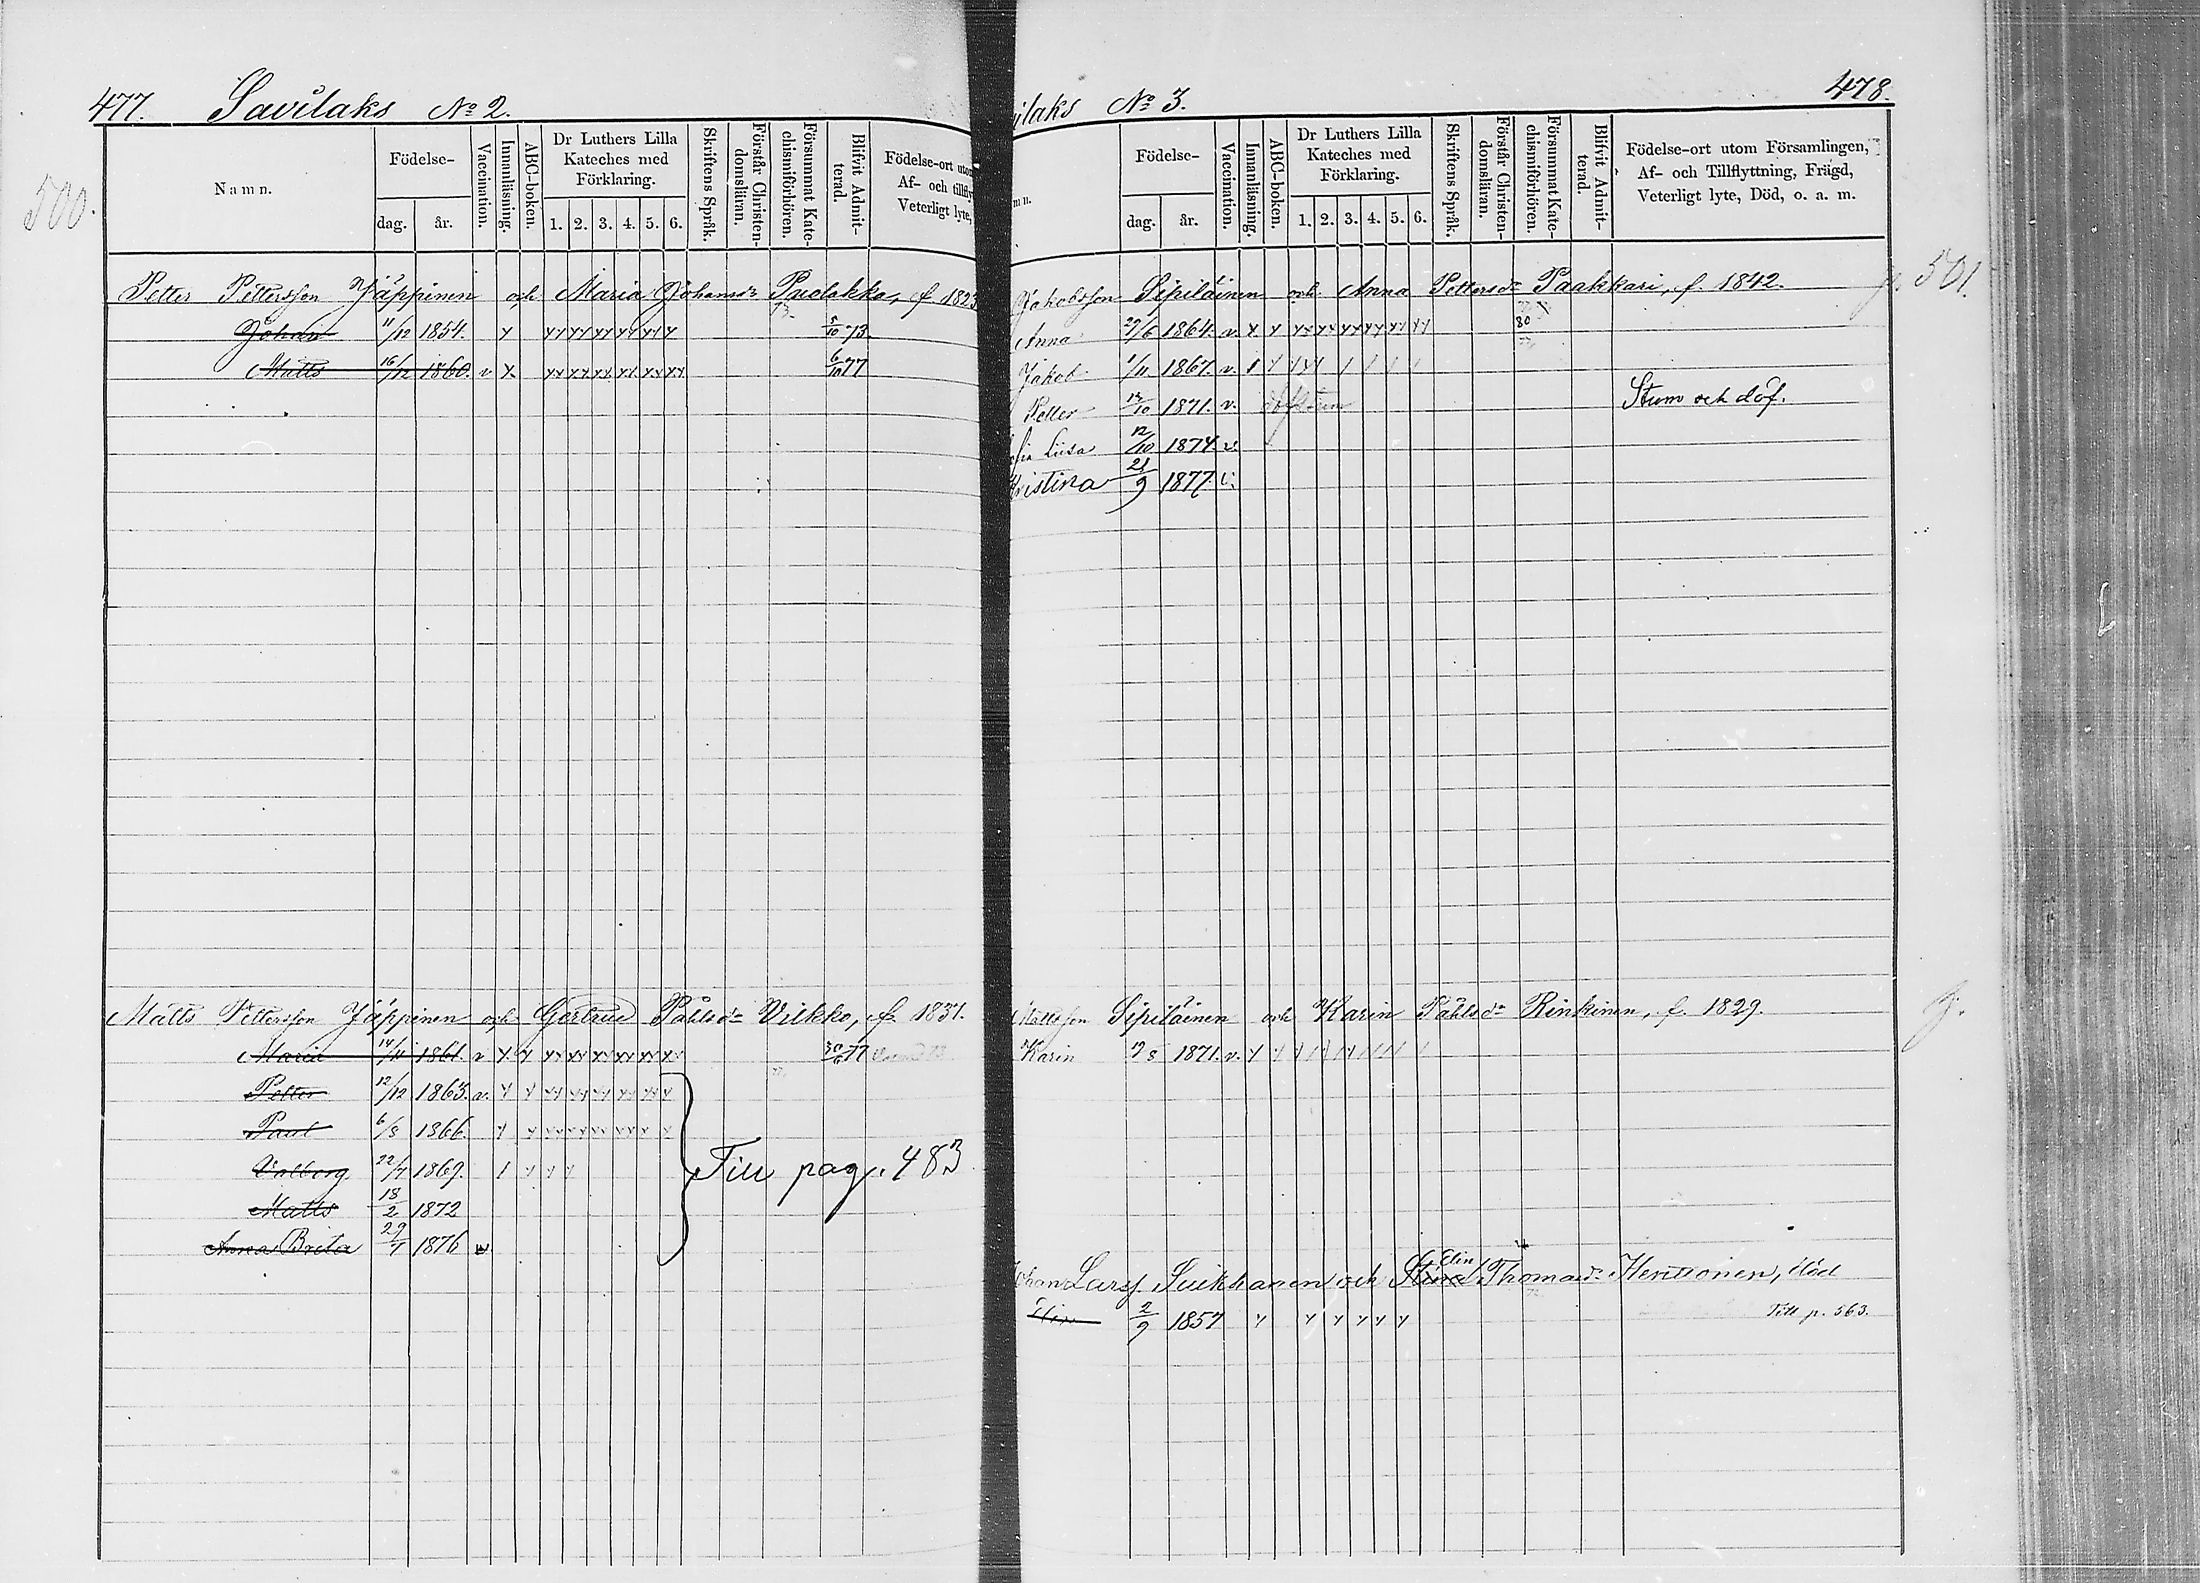 477. Savilaks No 2.
500.
Namn.
Födelse-
dag. år.
Vaccination.
Innanläsning.
ABC-boken.
Dr Luthers Lilla
Kateches med
Förklaring.
1. 2. 3. 4. 5. 6.
Skriftens Språk.
Förstår Christen-
domsläran.
Försummat Kate-
chismiförhören.
Blifvit Admit-
terad.
Födelse-ort utom
Af- och tillfly
Veterligt lyte,
Petter Pettersson Jäppinen och Maria Johansdr f 1823
Johan 11/12 1854. x xx xx xx xx xx x 5/10 73.
Matts 16/12 1860. v x. xx xx xx xx xx xx 6/10 77
Matts Pettersson Jäppinen och Gertrud Påhlsdr Vilkko, f. 1837.
Maria 14/11 1861. v x x xx xx xx xx xx xx 77
Petter 12/12 1863. v. x x xx xx xx xx xx x
Paul 6/8 1866. x x xx xx xx xx x x
Valborg 22/7 1869. 1 x x x
Matts 18/2 1872
Anna Brita 29/7 1876 v
Till pag. 483
ilaks No 3. 478.
p. 501.
mn.
Födelse-
dag. år.
Vaccination.
Innanläsning.
ABC-boken.
Dr Luthers Lilla
Kateches med
Förklaring.
1. 2. 3. 4. 5. 6.
Skriftens Språk.
Förstår Christen-
domsläran.
Försummat Kate-
chismiförhören.
Blifvit Admit-
terad.
Födelse-ort utom Församlingen,
Af- och Tillflyttning, Frägd,
Veterligt lyte, Död, o. a. m.
Jakobsson Sipiläinen och Anna Pettersdr Paakkari, f. 1842.
Anna 27/6 1864. v. x x xx xx xx xx xx xx 80
Jakob 1/11 1867. v. 1 x xx x 1 1 1 1
Petter 14/10 1871. v. döfstum Stum och döf.
fia Lisa 12/10 1874. v.
Kristina 21/9 1877. v.
Mattsson Sipiläinen och Karin Påhlsdr Rinkinen, f. 1829.
Karin 1871. v. x
Johan Larss. Suikkanen och Stina Elin Thomasdr död
Elin 2/9 1857 x x x x x x Till p. 563.